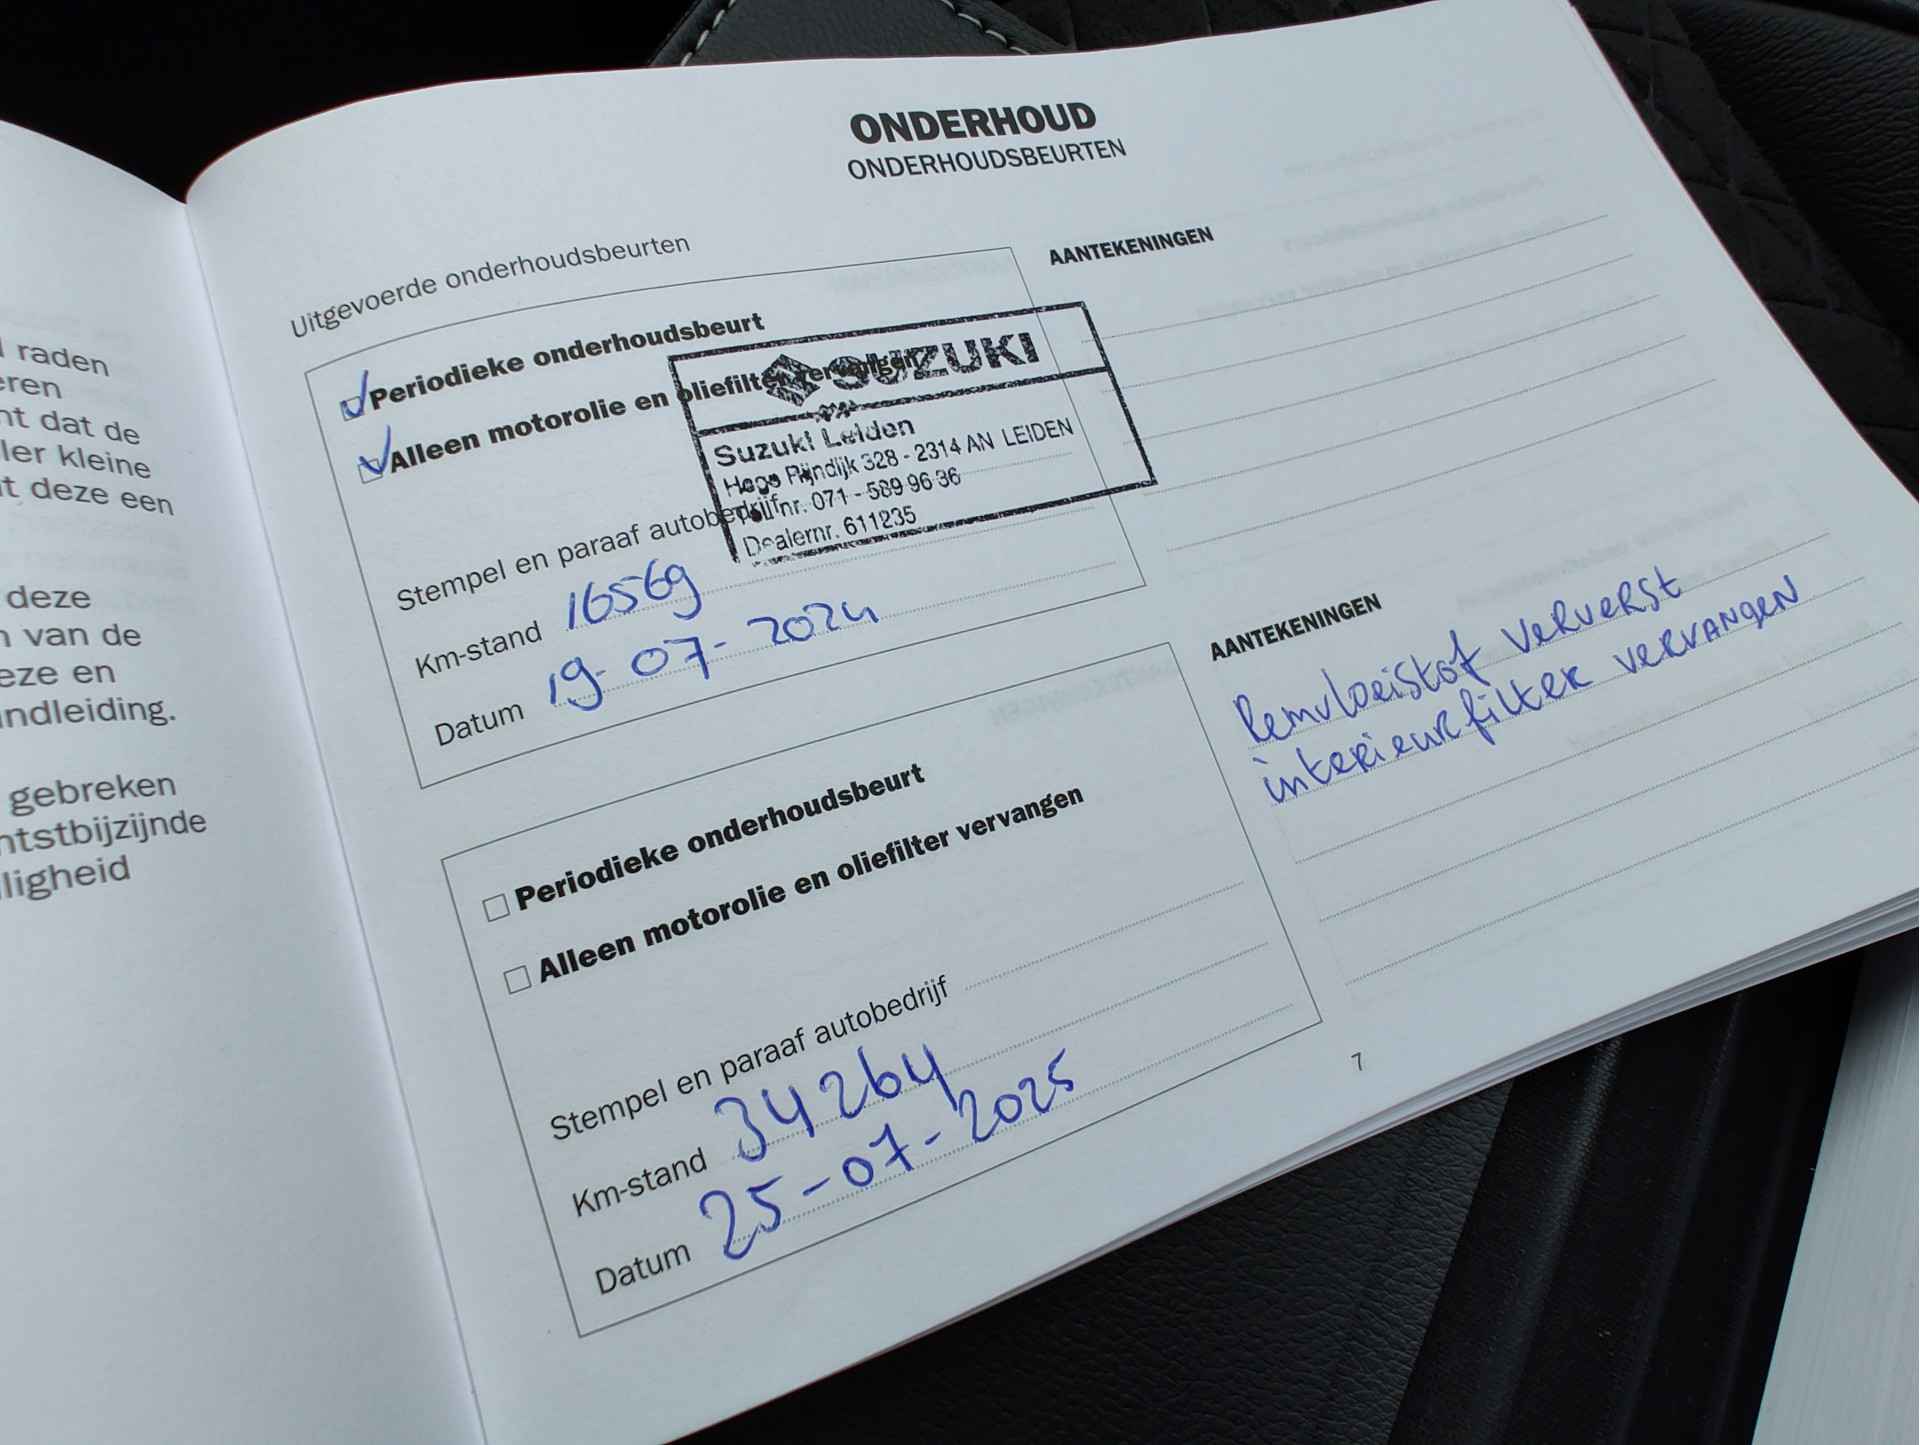 raden
eren
nt dat de
ler kleine
it deze een
deze
n van de
eze en
andleiding.
gebreken
htstbijzijnde
iligheid
ONDERHOUD
ONDERHOUDSBEURTEN
Uitgevoerde onderhoudsbeurten
Periodieke onderhoudsbeurt
Alleen motorolie en oliefilter vervangen
SUZUKI
Suzuki Leiden
Hoge Rijndijk 328 - 2314 AN LEIDEN
Tel.nr. 071 - 589 96 36
Dealernr. 611235
Stempel en paraaf autobedrijf
Km-stand 16569
Datum 19-07-2024
AANTEKENINGEN
Periodieke onderhoudsbeurt
Alleen motorolie en oliefilter vervangen
Stempel en paraaf autobedrijf
Km-stand 34264
Datum 25-07-2025
AANTEKENINGEN
Remvloeistof ververst
interieurfilter vervangen
7